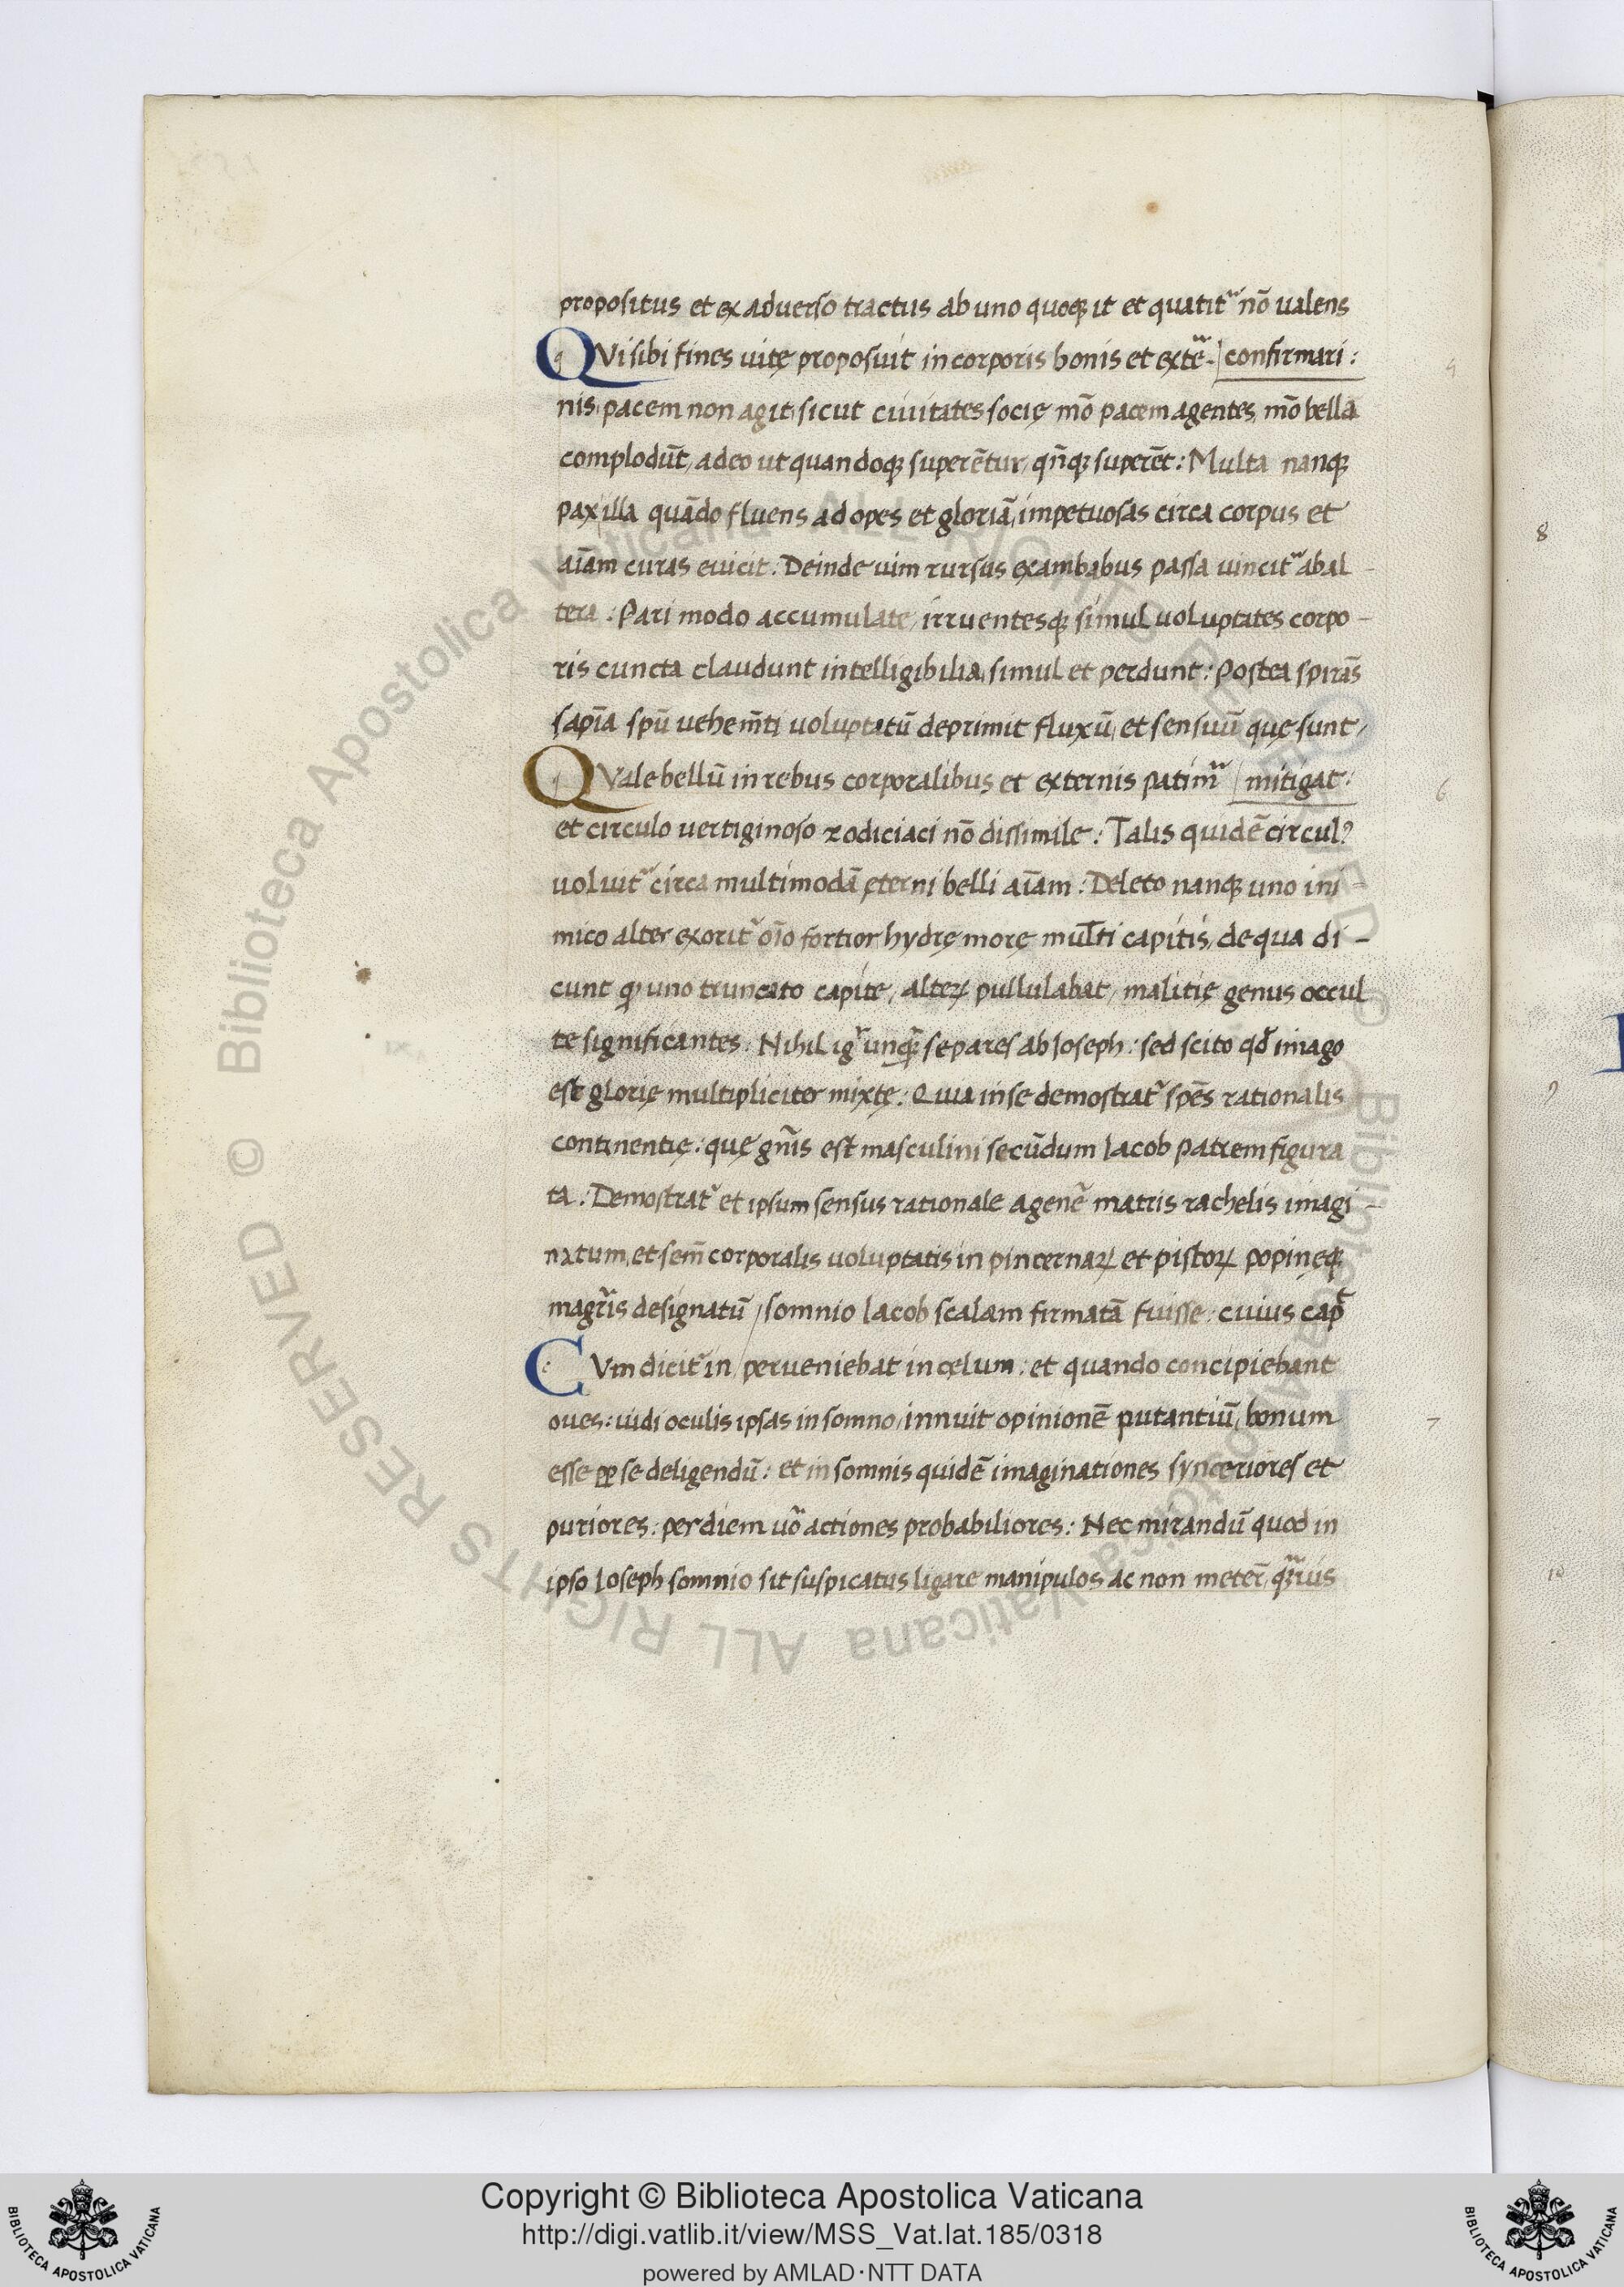 propositus et ex aduerso tractus ab uno quoqꝫ it et quatit᷑ nō ualens
QVi sibi fines uitę proposuit in corporis bonis et exte᷑- confirmari:
nis, pacem non agit, sicut ciuitates socię mō pacem agentes, mō bella
complodūt, adeo ut quandoqꝫ superētur, qn̄qꝫ superēt: Multa nanqꝫ
pax illa quādo fluens ad opes et gloriā, impetuosas circa corpus et
aīam curas euicit: Deinde uim rursus ex ambabus passa uincit᷑ ab al-
tera: Pari modo accumulate, irruentesqꝫ simul uoluptates corpo-
ris cuncta claudunt intelligibilia, simul et perdunt: Postea spirās
sapīa spū uehem̄ti uoluptatū deprimit fluxū, et sensuū quę sunt,
QVale bellū in rebus corporalibus et externis patim᷑ mitigat:
et circulo uertiginoso zodiciaci nō dissimile: Talis quidē circulꝰ
uoluit᷑ circa multimodā ęterni belli aīam: Deleto nanqꝫ uno ini-
mico alter exorit᷑ oīo fortior hydrę morę multi capitis, de qua di-
cunt ꝙ uno truncato capite, alteꝝ pullulabat, malitię genus occul
te significantes: Nihil ig᷑ unqꝫ̄ separes ab Ioseph: sed scito qđ imago
est glorię multipliciter mixtę: Quia in se demostrat᷑ spēs rationalis
continentię: quę gn̄is est masculini secūdum Iacob patrem figura
ta: Demostrat᷑ et ipsum sensus rationale a genē matris rachelis imagi-
natum, et sem̄ corporalis uoluptatis in pincernaꝝ et pistoꝝ popinęqꝫ
magr̄is designatū, somnio Iacob scalam firmatā fuisse: cuius cap᷑
CVm dicit᷑ in perueniebat in cęlum: et quando concipiebant
oues: uidi oculis ipsas in somno, innuit opinionē putantiū, bonum
esse ꝑ se deligendū: et in somnis quidē imaginationes synceriores et
puriores: per diem uō actiones probabiliores: Nec mirandū quod in
ipso Ioseph somnio sit suspicatus ligare manipulos ac non meter̄,
6
7
8
9
10
© Biblioteca Apostolica Vaticana ALL RIGHTS RESERVED © Biblioteca Apostolica Vaticana ALL RIGHTS RESERVED
Copyright © Biblioteca Apostolica Vaticana
http://digi.vatlib.it/view/MSS_Vat.lat.185/0318
powered by AMLAD·NTT DATA
BIBLIOTECA APOSTOLICA VATICANA
BIBLIOTECA APOSTOLICA VATICANA